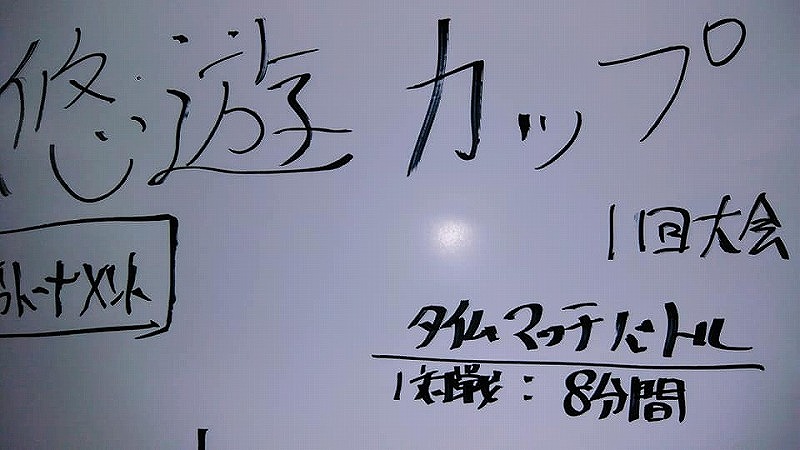 悠遊カップ
1回大会
トーナメント
タイムマッチバトル
1対戦：8分間